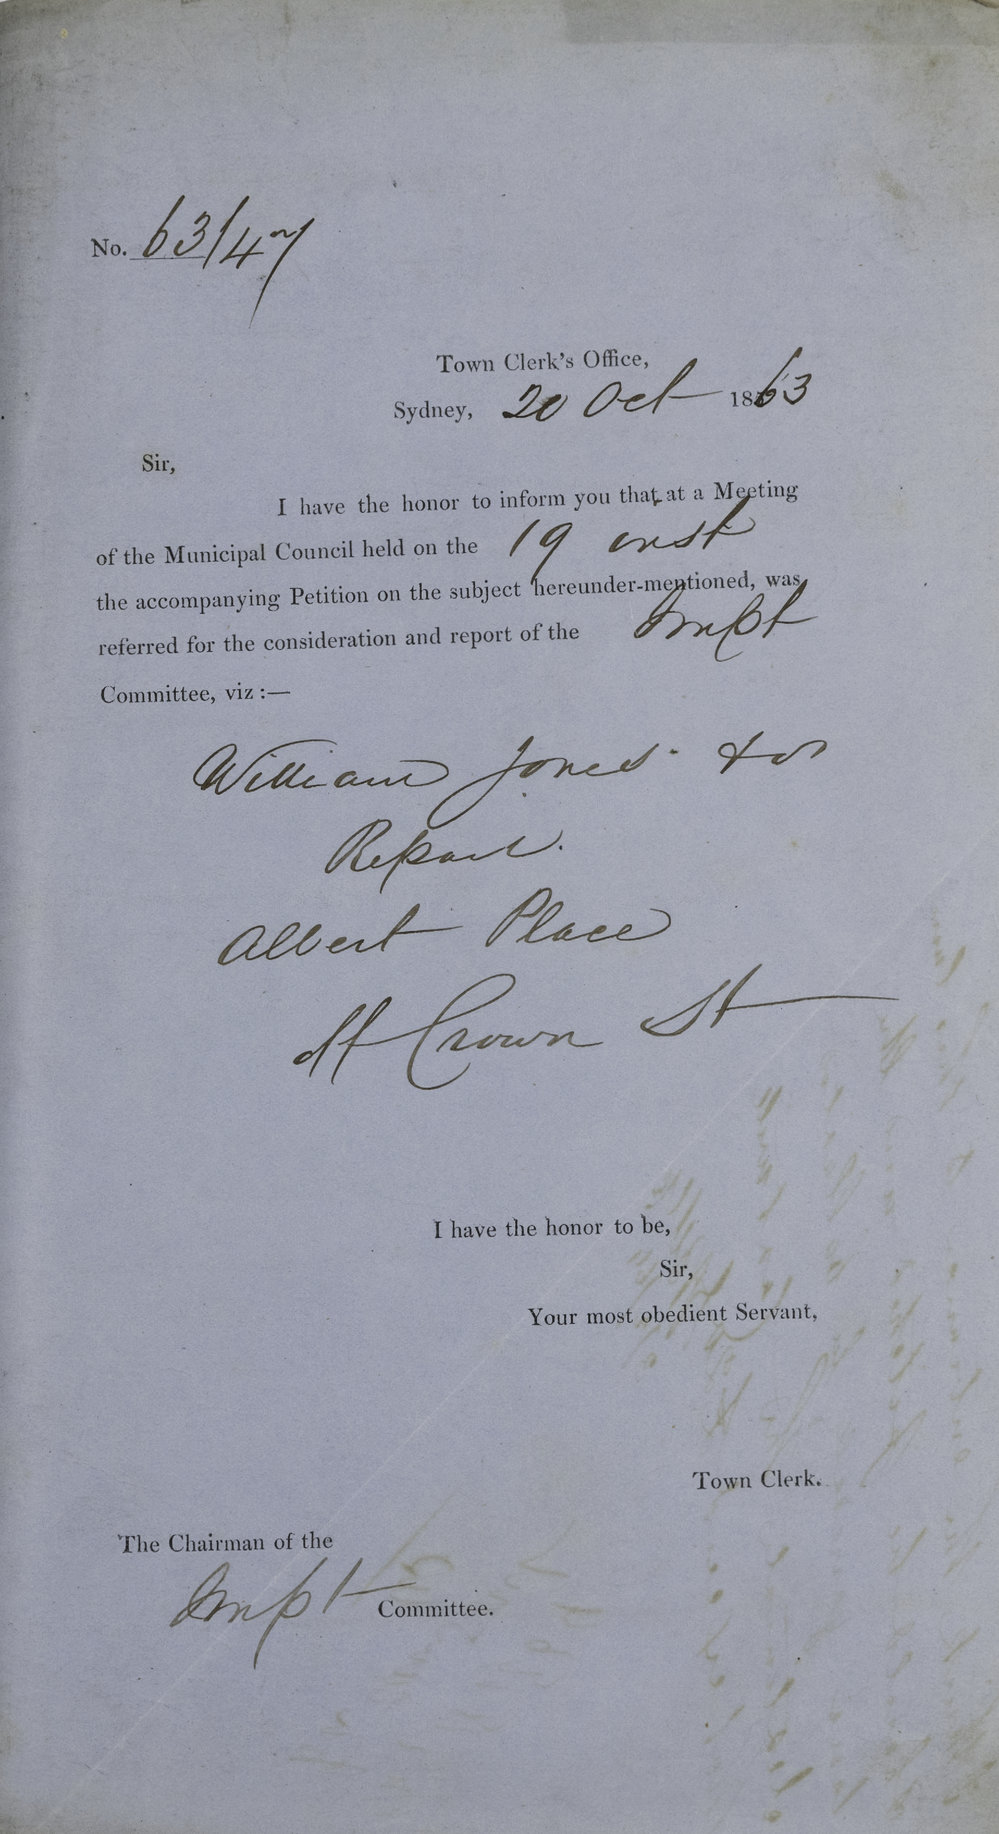 No. 63/47
Town Clerk's Office,
Sydney, 20 Oct 1863
Sir,
I have the honor to inform you that, at a Meeting
of the Municipal Council held on the 19 inst
the accompanying Petition on the subject hereunder-mentioned, was
referred for the consideration and report of the Impt
Committee, viz :—
William Jones & os
Repair.
Albert Place
off Crown St
I have the honor to be,
Sir,
Your most obedient Servant,
Town Clerk.
The Chairman of the
Impt Committee.